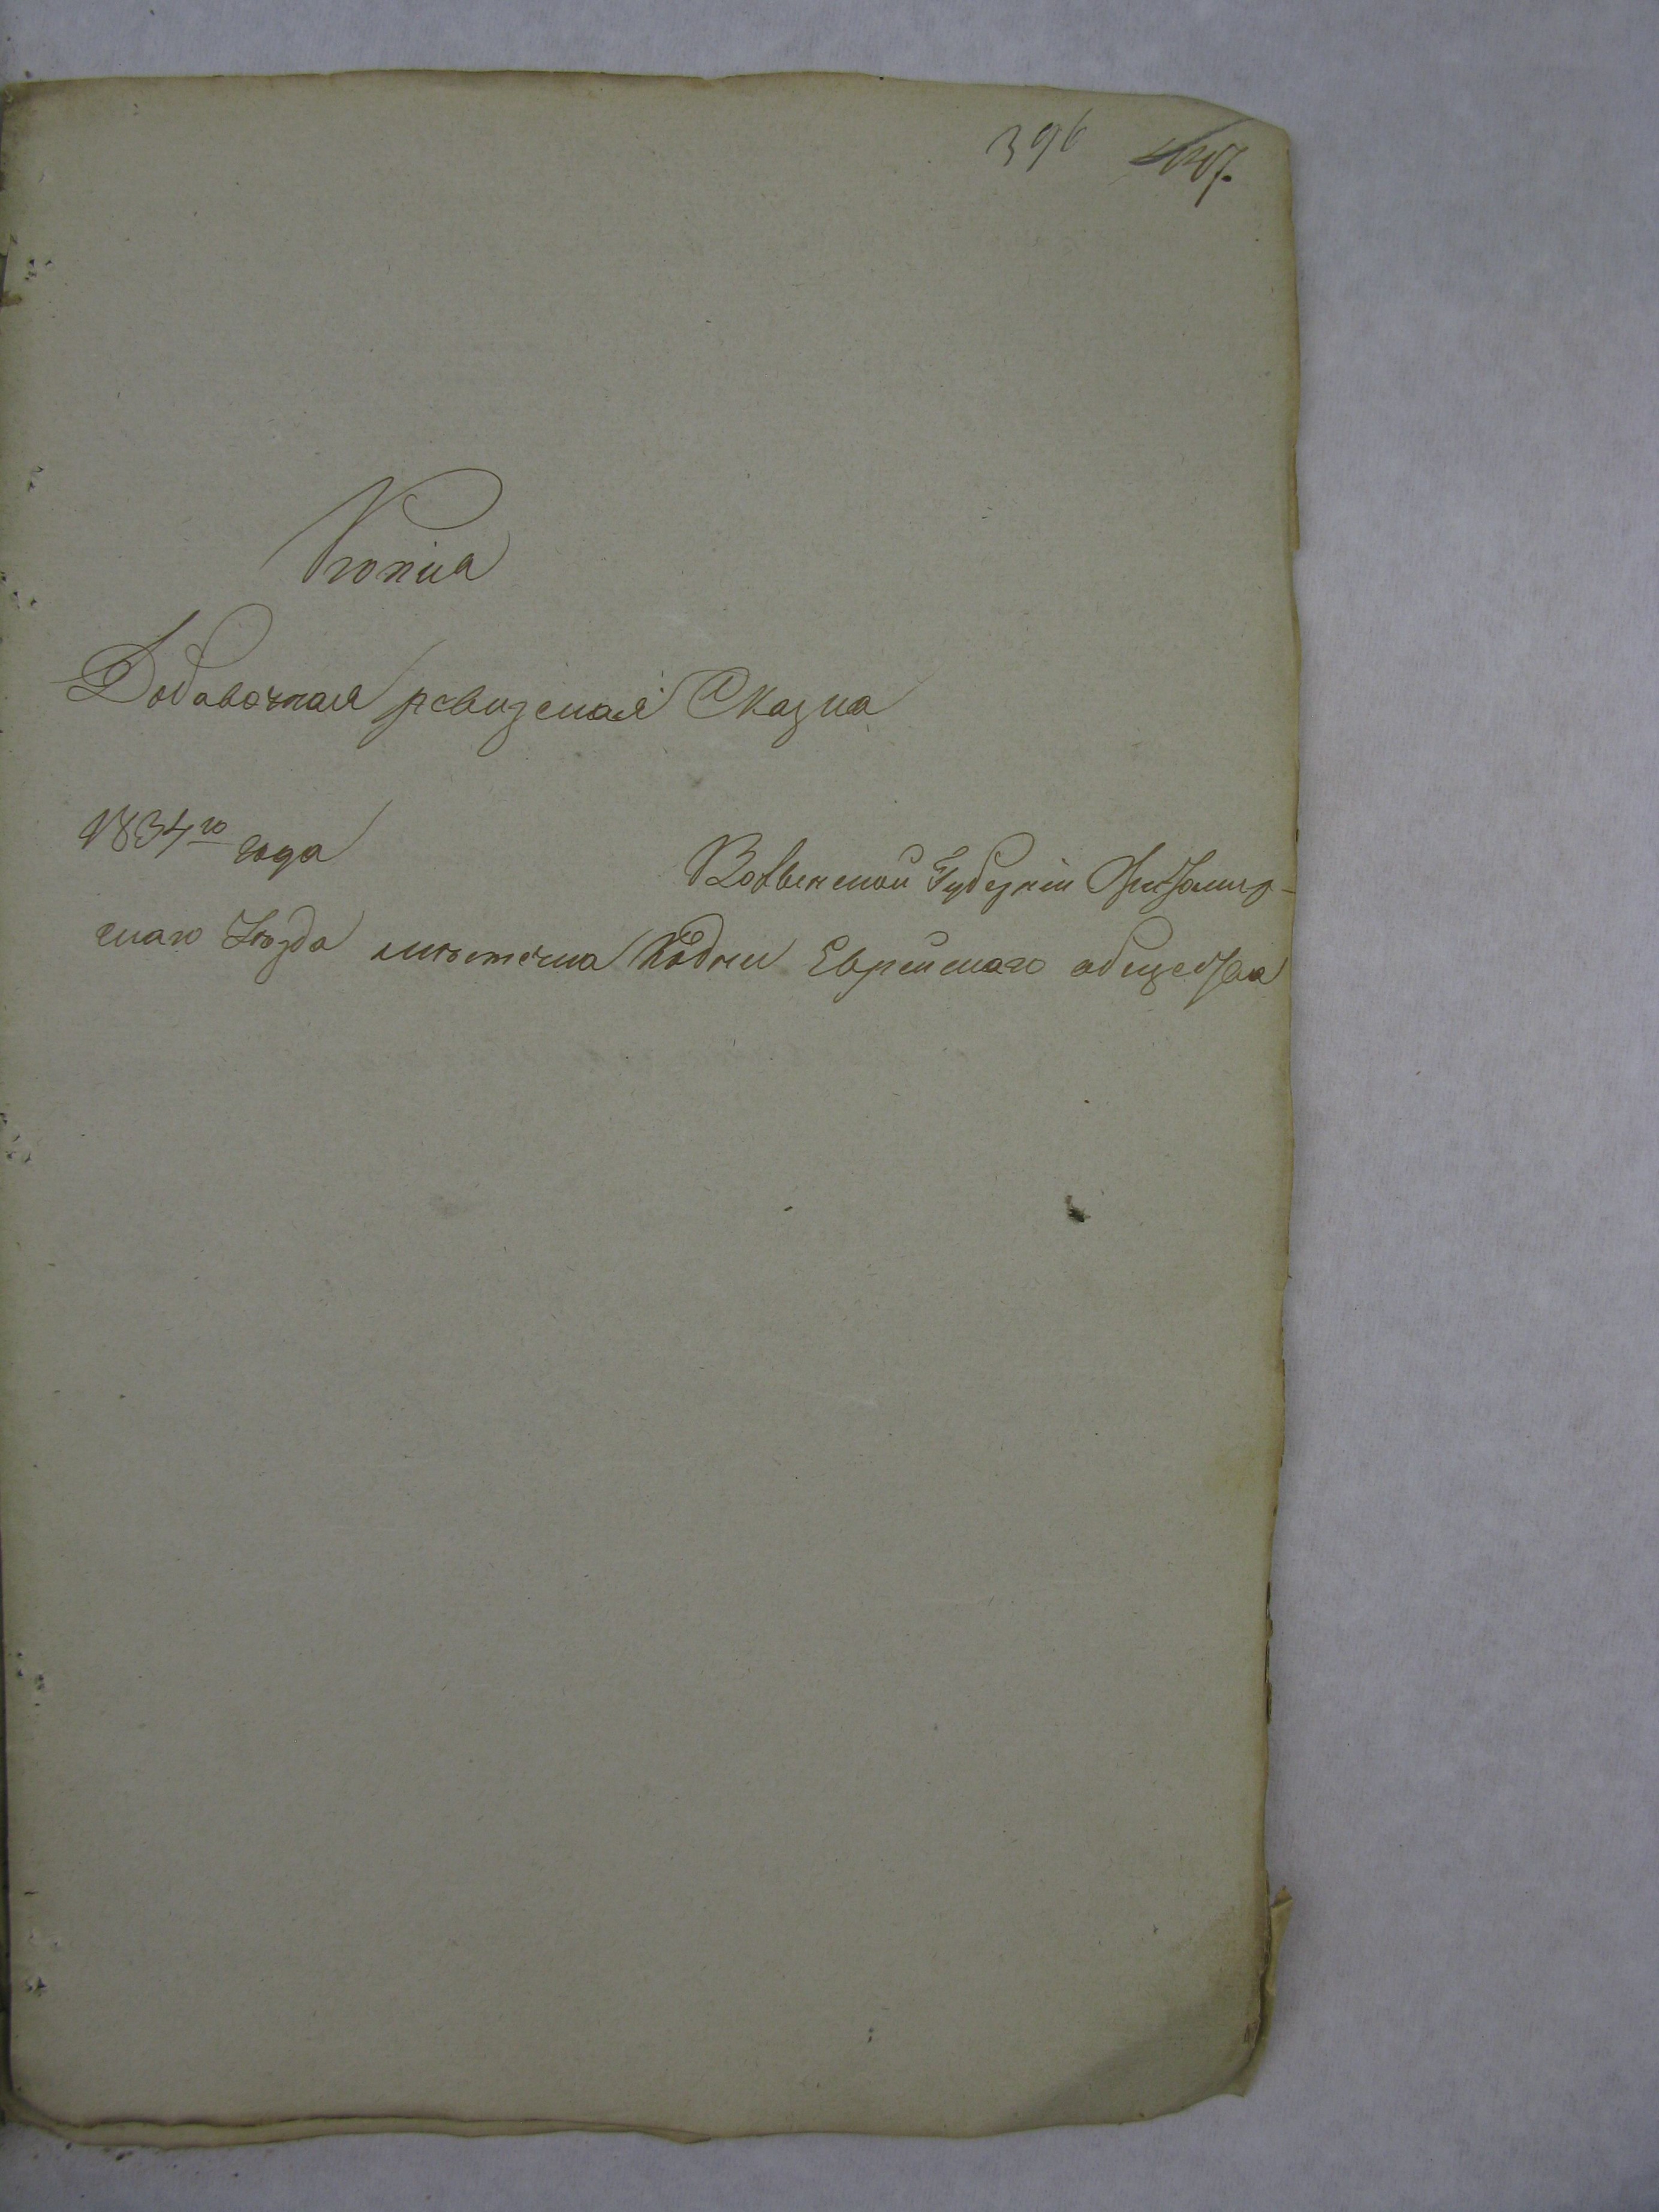 396
Копия
Добавочная ревизская Сказка
1834го года
Волынской Губернии Житомир-
скаго Уѣзда мѣстечка Кодни Еврейскаго общества